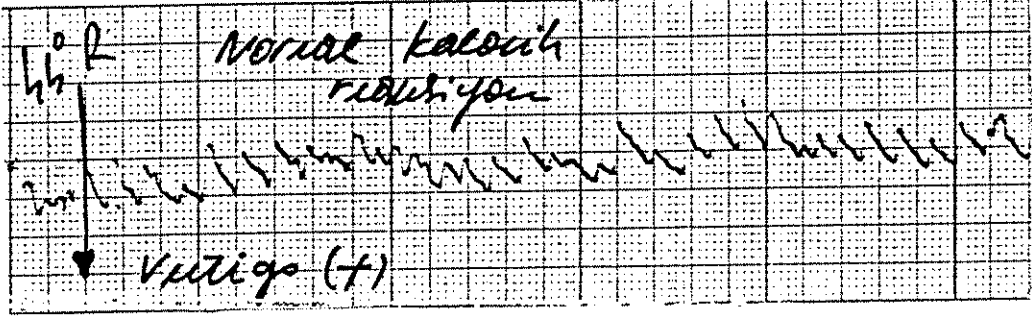 44° R
Normal kalorik
reaksiyon
Vertigo (+)